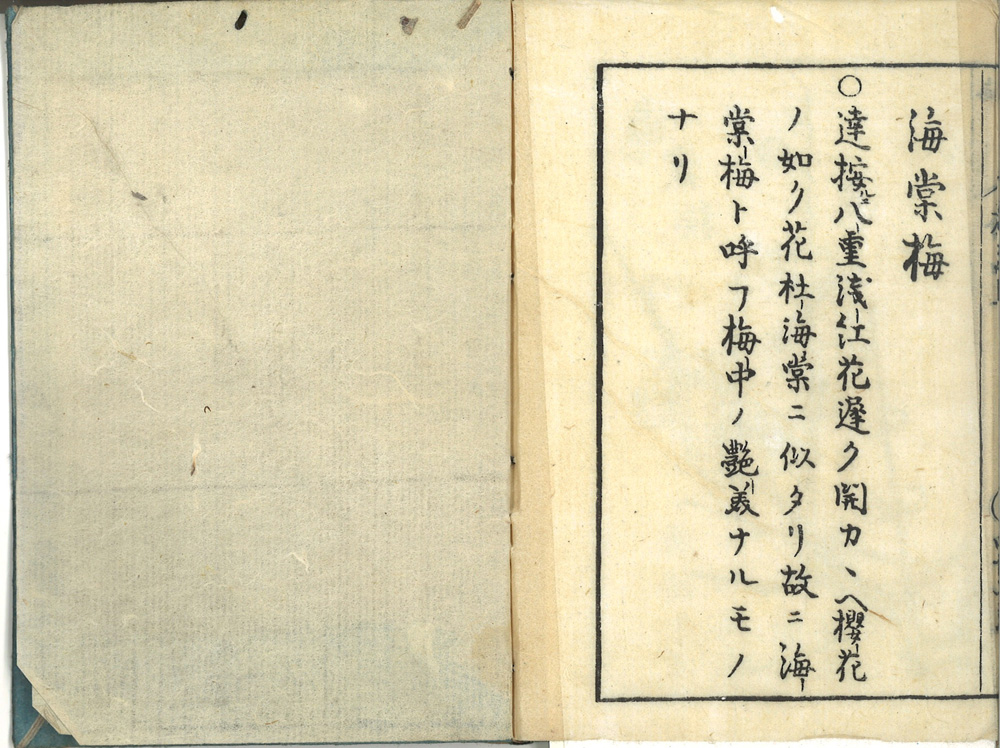 海棠梅
○達按ルニ八重浅紅花遅ク開カヽヘ櫻花
ノ如ク花杜海棠ニ似タリ故ニ海
棠梅ト呼フ梅中ノ艶美ナルモノ
ナリ